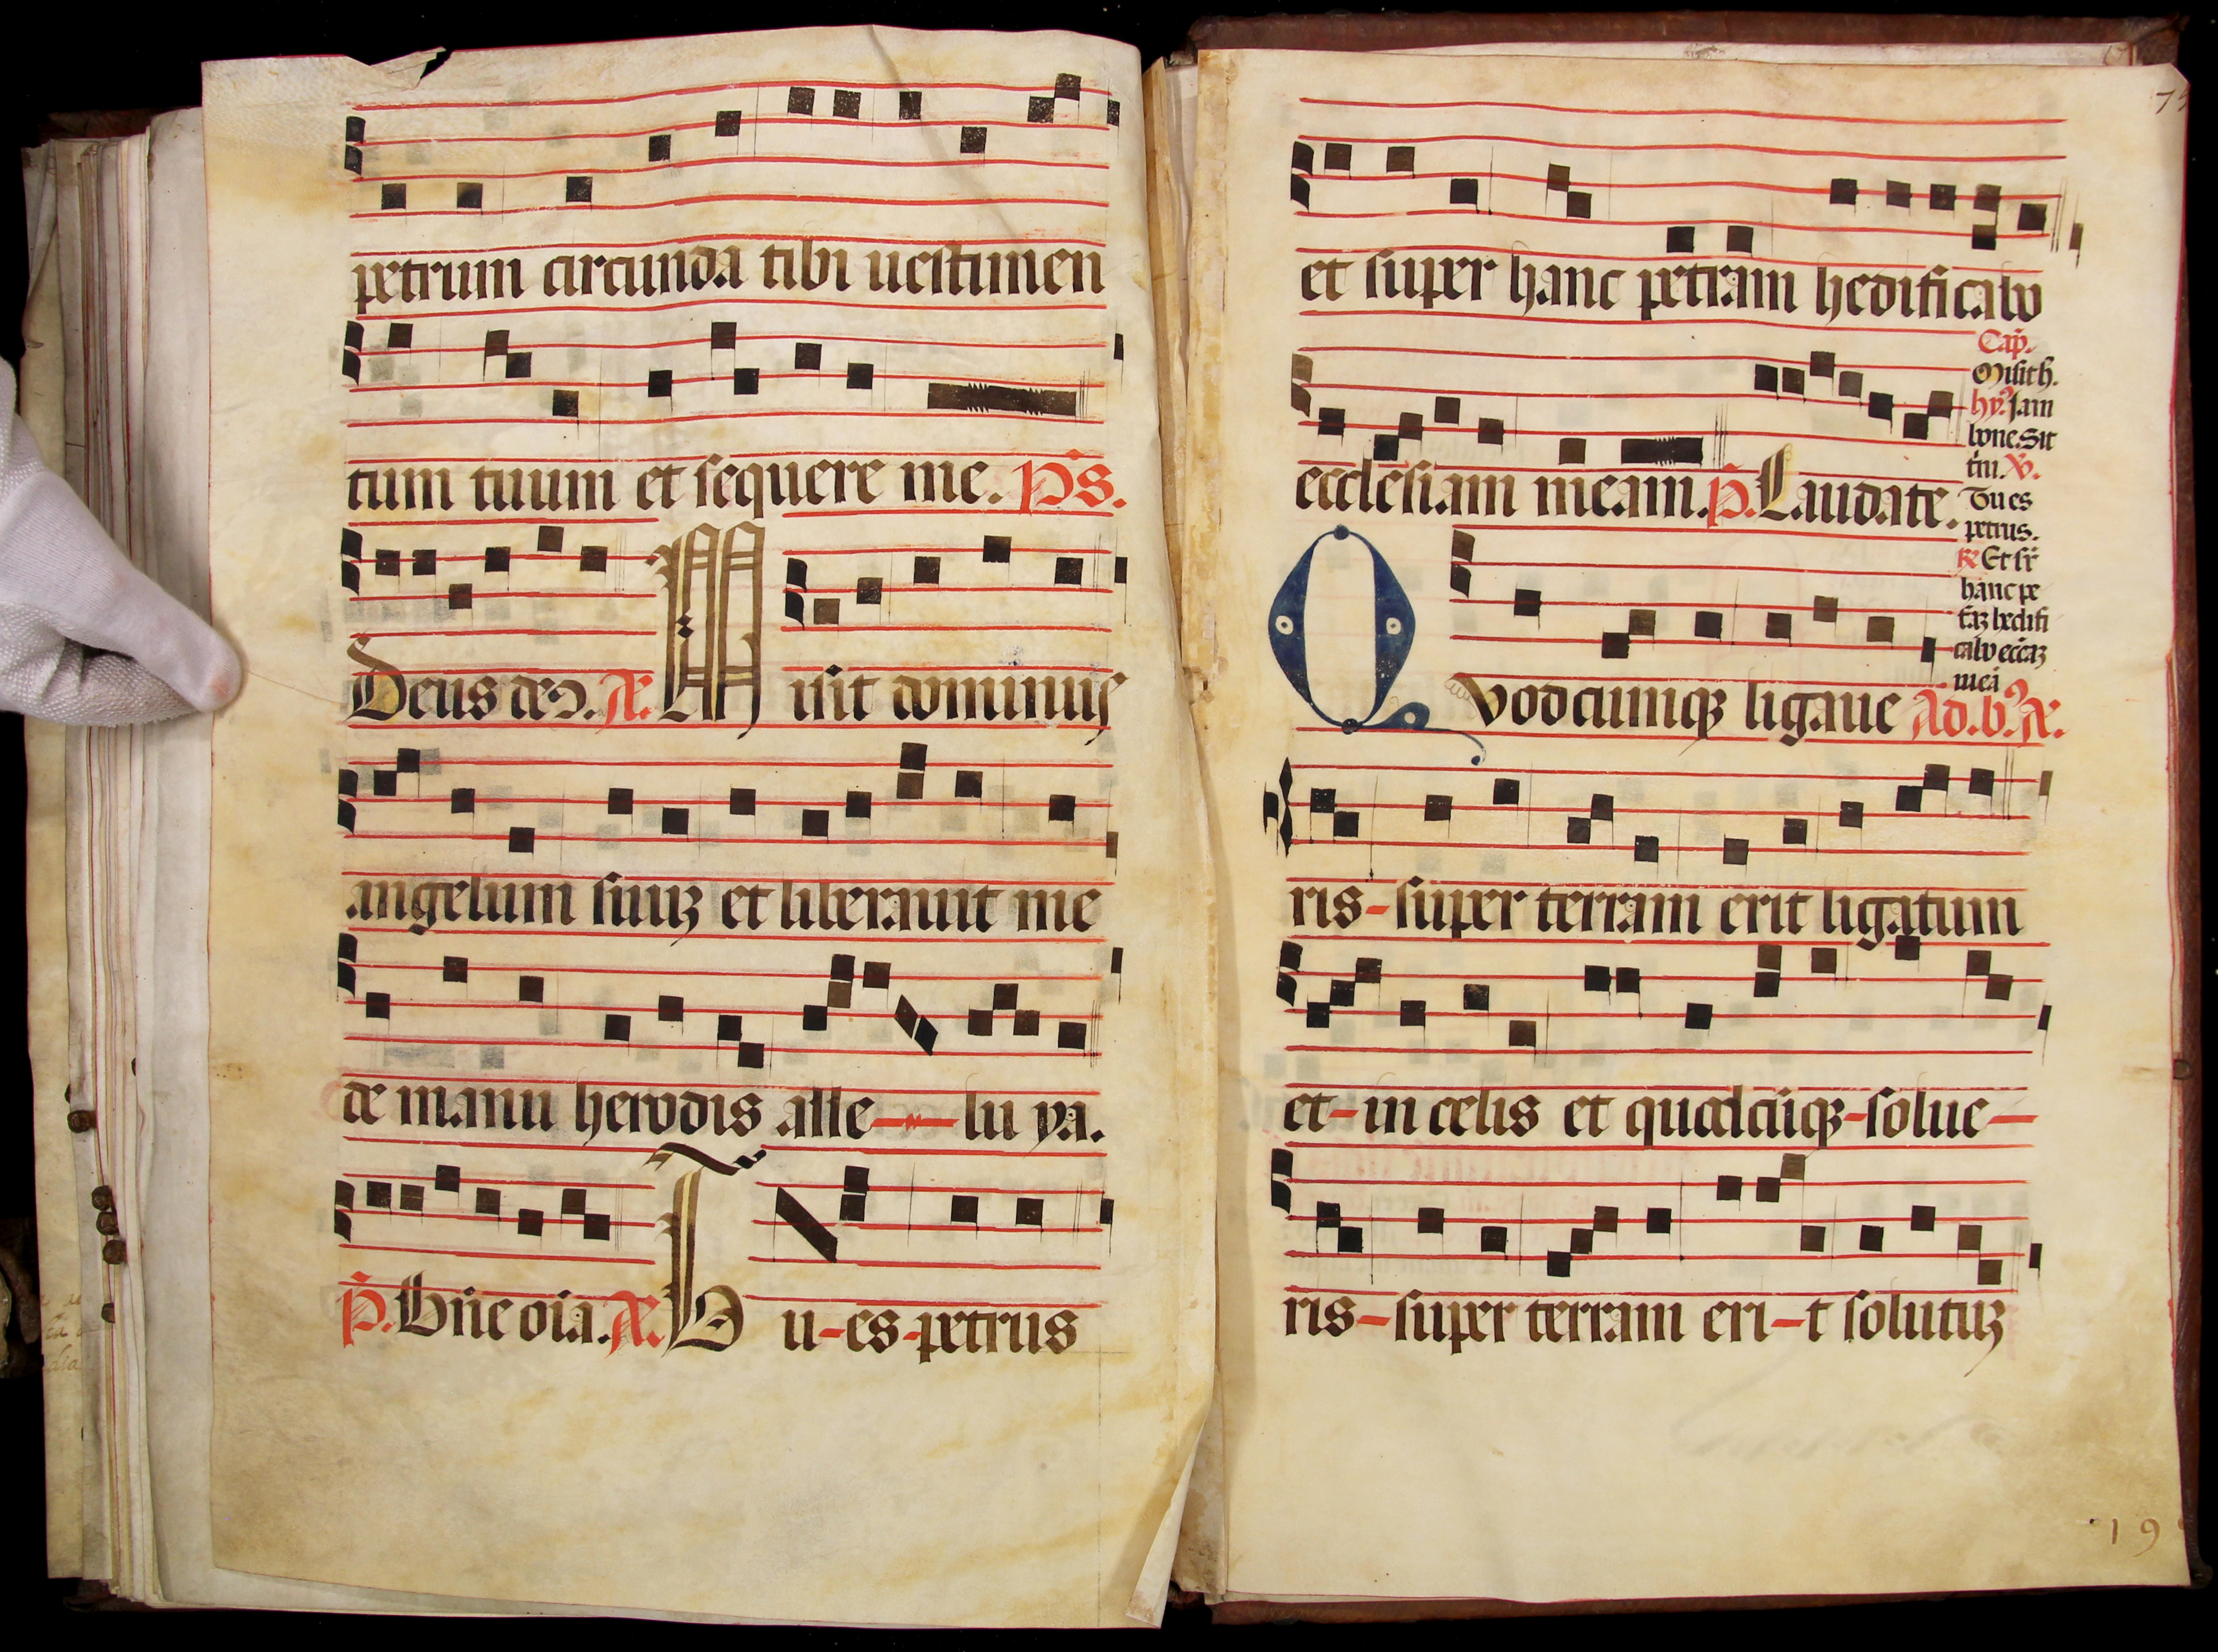 petrum circunda tibi uestimen
tum tuum et sequere me. Ps.
Deus deo. A. M isit dominus
angelum suuz et liberauit me
de manu herodis alle-lu ya.
P. Dñe oia. A. T u-es-petrus
75
et super hanc petram hedificabo
ecclesiam meam. P. Laudate.
Cap.
Misit h.
hy. Jam
bone. Sit
tm. V.
Tu es
petrus.
R Et sr
hanc pe
traz hedifi
cabo eccaz
mea
Q vodcumqz ligaue Ad. b. A.
ris-super terram erit ligatum
et-in celis et quodcuqz-solue-
ris-super terram eri-t solutuz
19